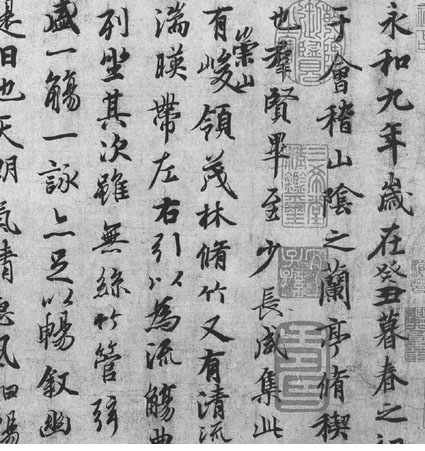 永和九年歲在癸丑暮春之初
于會稽山陰之蘭亭脩禊
也羣賢畢至少長咸集此
有崇山峻領茂林脩竹又有清流
湍暎帶左右引以為流觴曲
列坐其次雖無絲竹管弦
盛一觴一詠亦足以暢敘幽
是日也天朗氣清惠風和暢